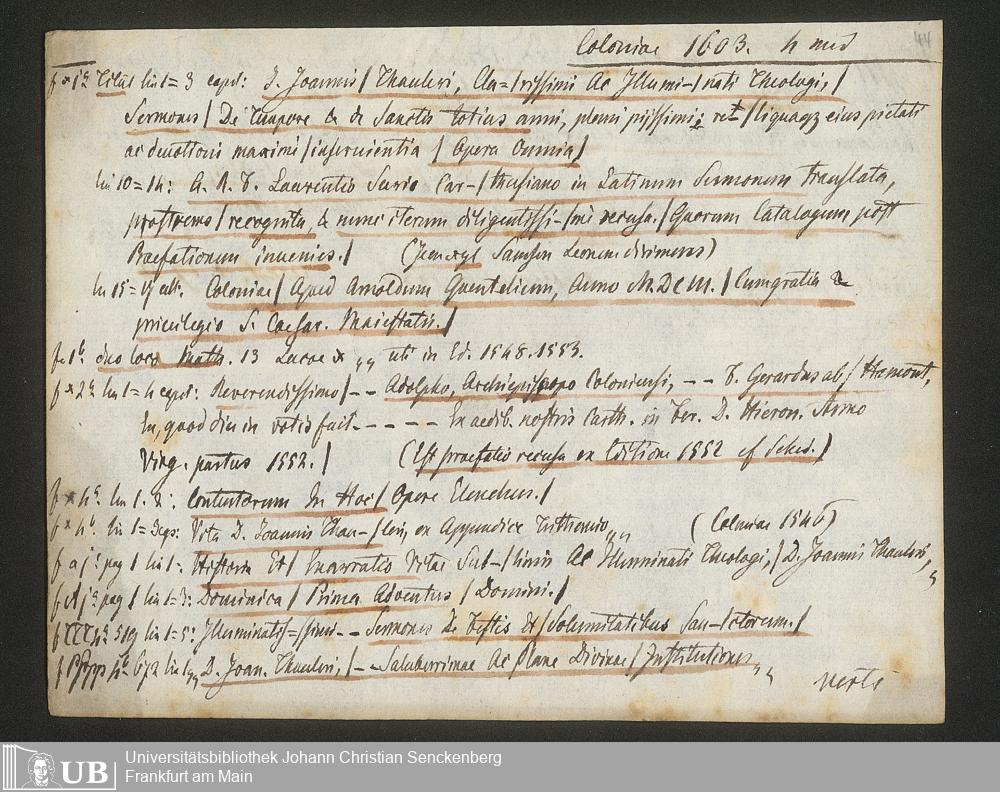 Coloniae 1603. 4 med 44
f * 1ª Titul lin 1=3 capit: D. Joannis / Thauleri, Cla=/rissimi Ac Illumi-/nati Theologi, /
Sermones / De Tempore & de Sanctis totius anni, plenè pijssimi; / reliquaqz eius pietati
ac devotioni maximè / inservientia / Opera Omnia /
lin 10=14: A. R. F. Laurentio Surio Car-/thusiano in Latinum Sermonem translata,
postremo / recognita, & nunc iterum diligentissi-/mè recusa. / Quorum Catalogum post
Praefationem invenies. / ( Samson Leonem dirimens)
lin 15= ult: Coloniae / Apud Arnoldum Quentelium, Anno M.DCIII. / Cum gratia &
privilegio S. Caesar. Maiestatis. /
f * 1ᵇ duo loca Math. 13 Lucae x ,, uti in Ed. 1548. 1553.
f * 2ª lin 1=4 capit: Reverendissimo / -- Adolpho, Archiepiscopo Coloniensi, -- F. Gerardus ab / Hamont,
En, quod diu in votis fuit - - - - - Ex aedib. nostris Carth. in fer. D. Hieron. Anno
Virg. partus 1552. / (Est praefatio recusa ex Editione 1552 cf Sched.)
f * 4ª lin 1. 2: Contentorum In Hoc / Opere Elenchus. /
f * 4ᵇ lin 1=3: Vita D. Joannis Thau-/leri, ex Appendice Trithemio ,, (Coloniae 1546)
f a jª pag 1 lin 1=: Historia Et / Enarratio Vitae Sub-/limis Ac Illuminati Theologi, / D. Joannis Thauleri, ,,
f A jª pag 1 lin 1=3: Dominica / Prima Adventus / Domini. /
519 lin 1=5: Illuminatis=/simi -- Sermones De Festis Et / Solemnitatibus San-/ctorum. /
672 lin 1 ,, D. Joan. Thauleri, / -- Saluberrimae Ac Plane Divinae / Institutiones ,,
verte
UB
Universitätsbibliothek Johann Christian Senckenberg
Frankfurt am Main